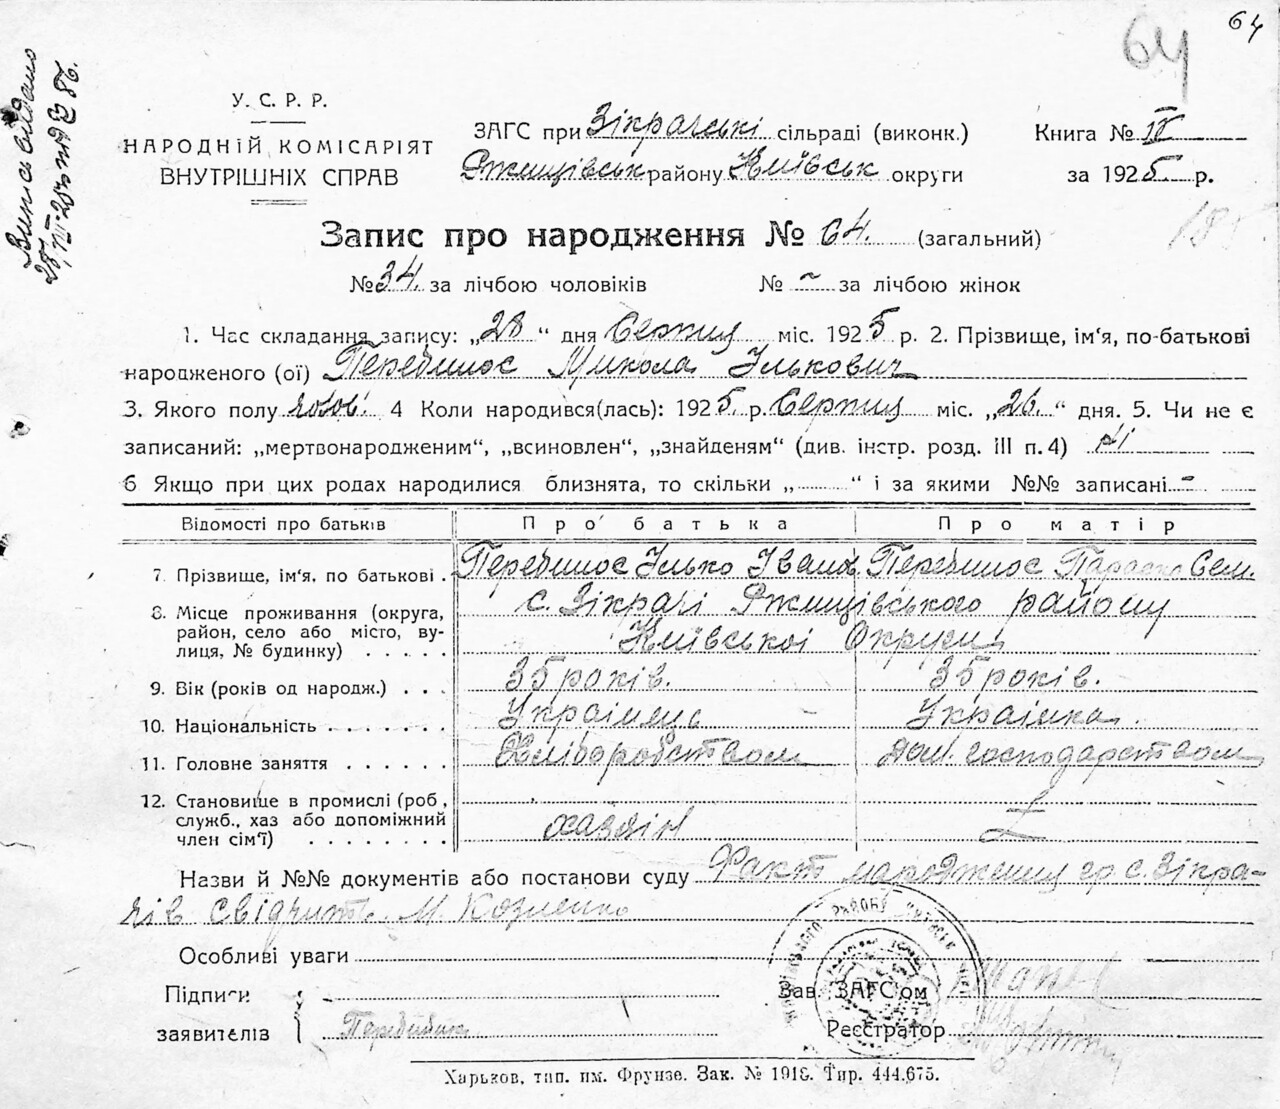 64
64
Випись видано
У. С. Р. Р.
НАРОДНІЙ КОМІСАРІЯТ
ВНУТРІШНІХ СПРАВ
ЗАГС при Зікрачські сільраді (виконк.)
Ржищівськ району Київськ округи
Книга № IV
за 1925. р.
Запис про народження № 64. (загальний)
№ 34. за лічбою чоловіків № – за лічбою жінок
1. Час складання запису: „28“ дня Серпня міс. 1925 р. 2. Прізвище, ім‘я, по-батькові
народженого (ої) Перебийнос Микола Ількович
3. Якого полу чолов. 4 Коли народився(лась): 1925. р. Серпня міс. „26.“ дня. 5. Чи не є
записаний: „мертвонародженим“, „всиновлен“, „знайденям“ (див. інстр. розд. III п. 4) ні
6 Якщо при цих родах народилися близнята, то скільки „ “ і за якими №№ записані –
Відомості про батьків Про батька Про матір
7. Прізвище, ім‘я, по батькові . Перебийнос Ілько Іванов Перебийнос Параска Сем.
8. Місце проживання (округа, с. Зікрачі Ржищівського району
район, село або місто, ву- Київської Округи
лиця, № будинку) . . . . .
9. Вік (років од народж.) . . . 35 років. 35 років.
10. Національність . . . . . . . Українець Українка.
11. Головне заняття . . . . . . Хліборобством Дом. господарством
12. Становище в промислі (роб.,
служб., хаз або допоміжний хазяїн
член сім‘ї) . . . . . . . .
Назви й №№ документів або постанови суду Факт народження гр. с. Зікра-
чів свідчить М. Козленко
Особливі уваги
Підписи
заявителів
Зав. ЗАГС‘ом
Реєстратор
Харьков, тип. им. Фрунзе. Зак. № 1918. Тир. 444.675.